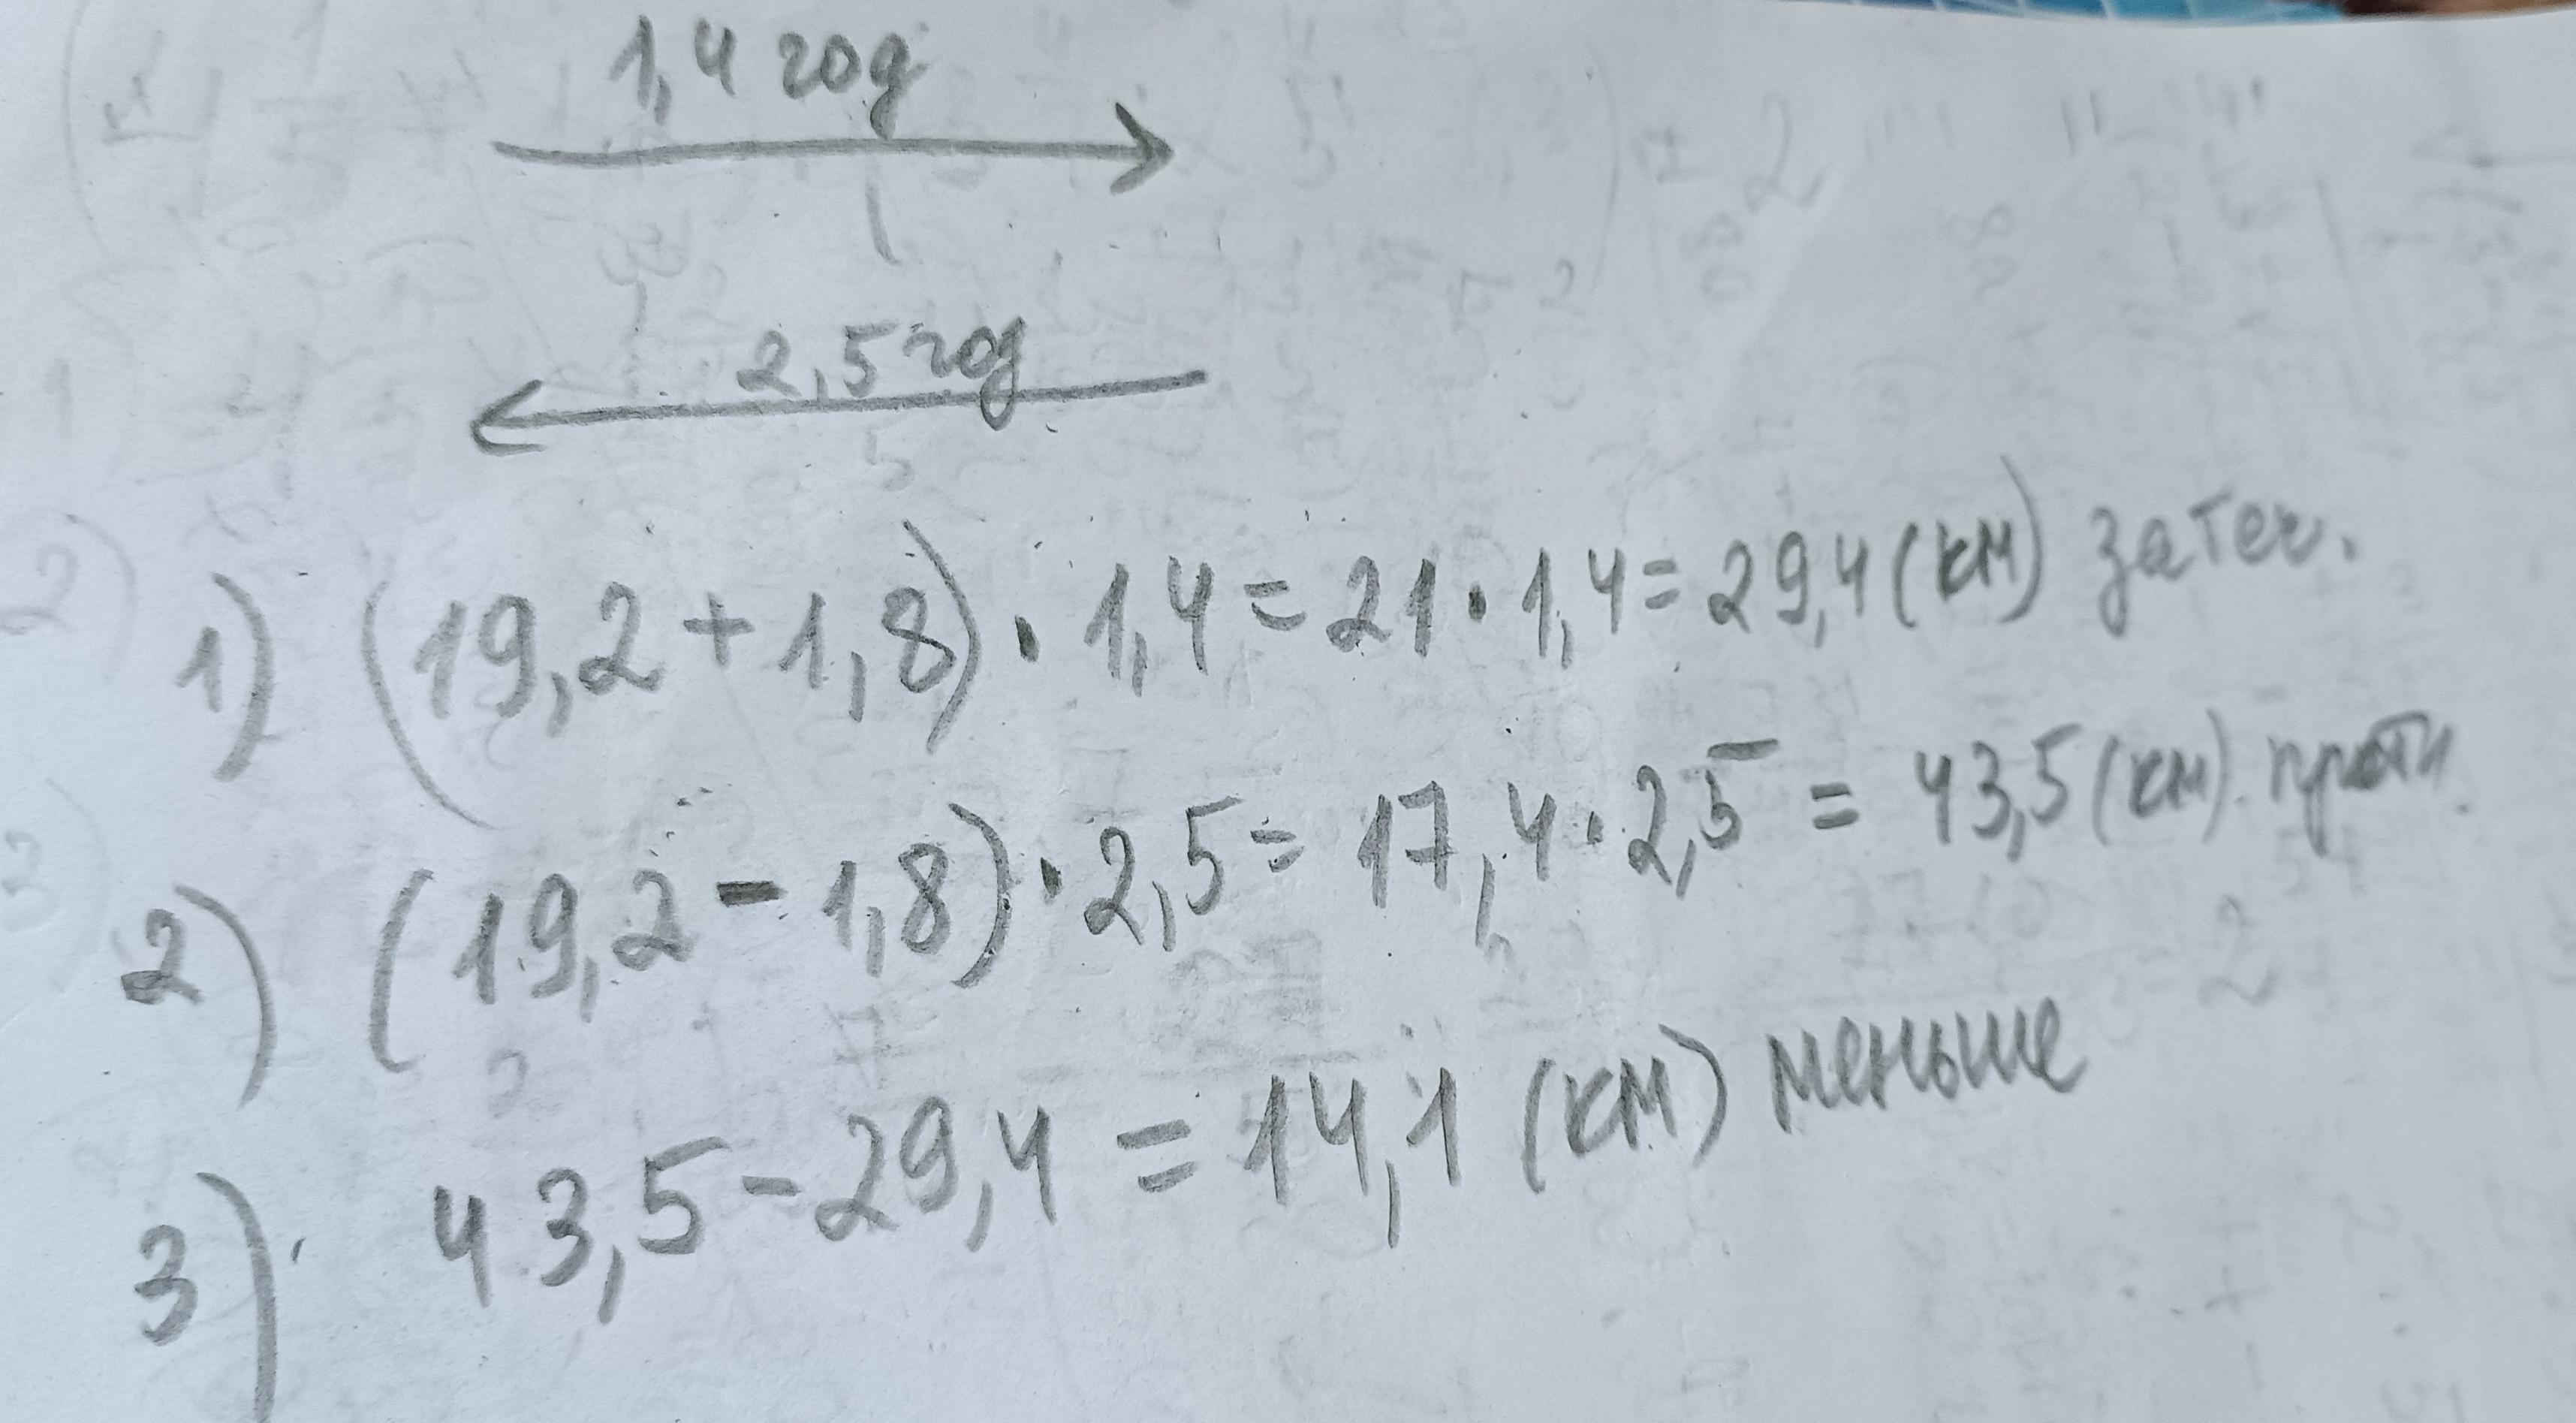 1,4 год
2,5 год
1) (19,2 + 1,8) · 1,4 = 21 · 1,4 = 29,4 (км) за теч.
2) (19,2 - 1,8) · 2,5 = 17,4 · 2,5 = 43,5 (км) проти
3) 43,5 - 29,4 = 14,1 (км) меньше